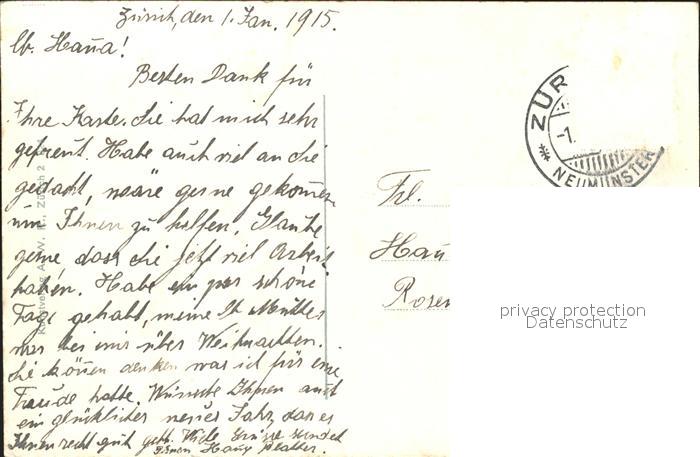 Zürich, den 1. Jan. 1915.
lb. Hanna!
Besten Dank für
Ihre Karte. Sie hat mich sehr
gefreut. Habe auch viel an Sie
gedacht, wäre gerne gekommen
um Ihnen zu helfen. Glaube
gerne dass Sie jetzt viel Arbeit
haben. Habe ein par schöne
Tage gehabt, meine lb Mutter
war bei uns über Weihnachten.
Sie können denken was ich für eine
Freude hatte. Wünsche Ihnen auch
ein glückliches neues Jahr, dass es
Ihnen recht gut geht. Viele Grüsse sendet
Ihnen
Frl.
Han
Rosen
ZÜR
-1.
* NEUMÜNSTER
privacy protection
Datenschutz
Zürich 2